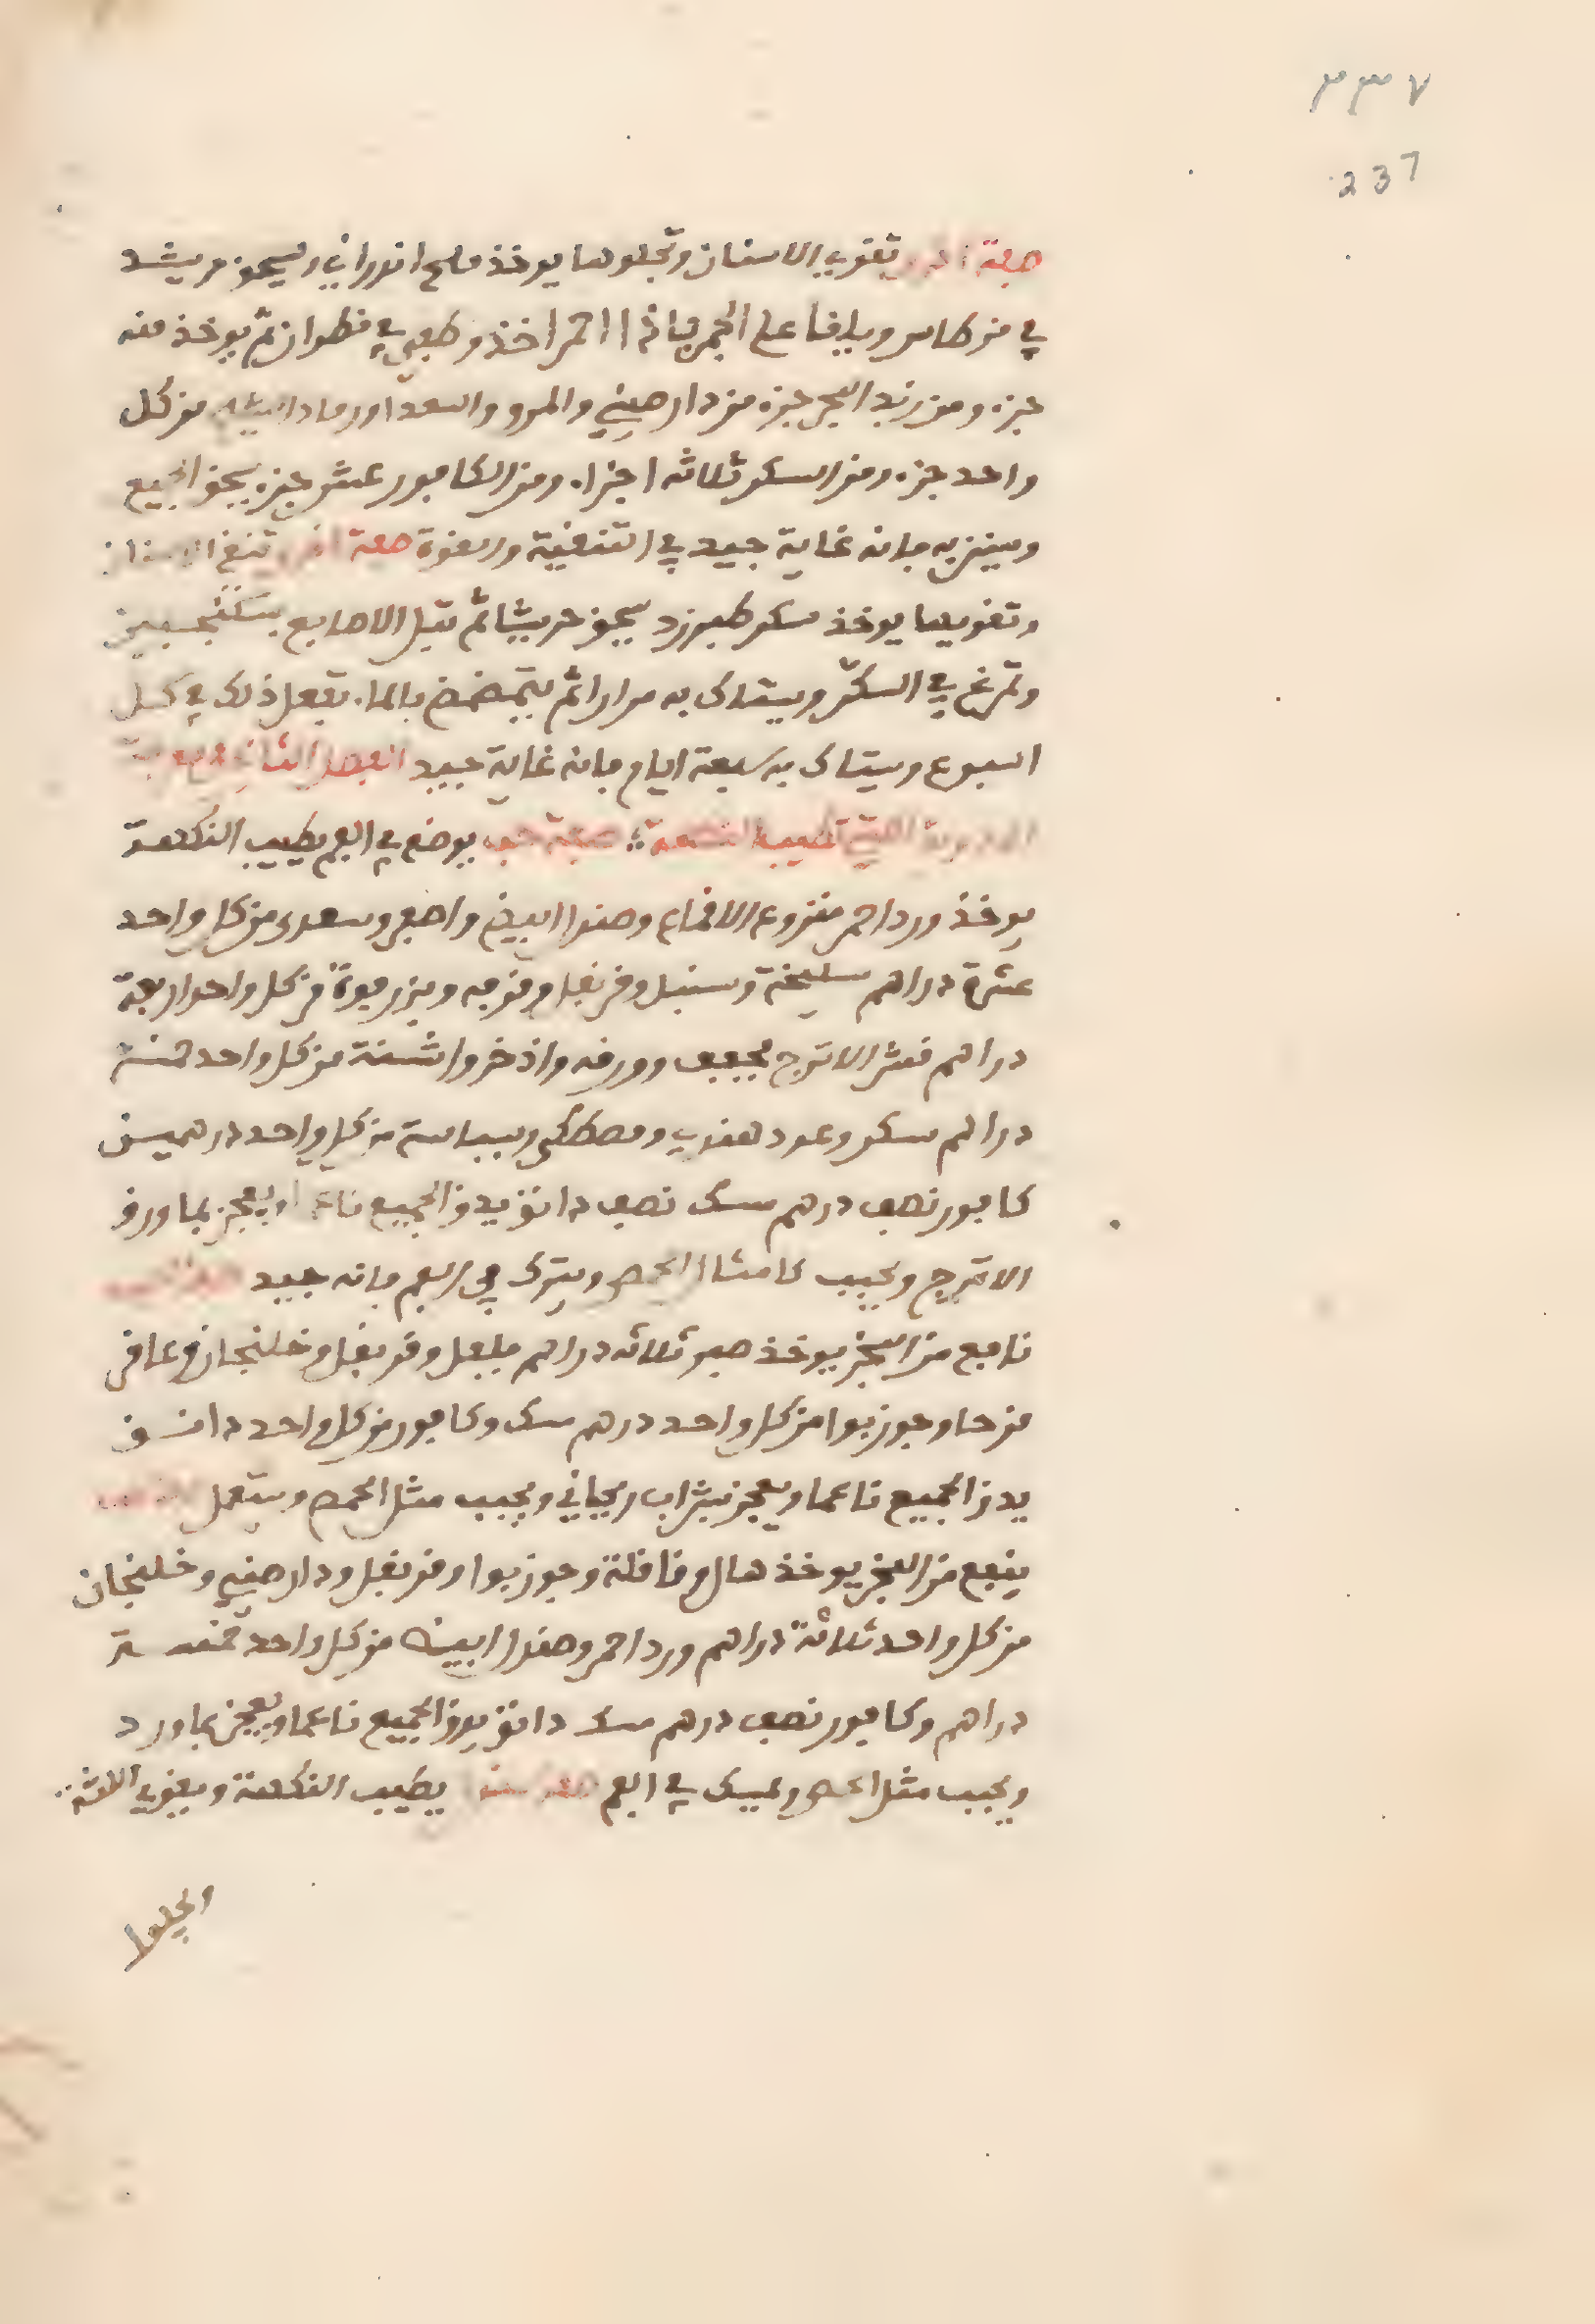 ٢٣٧
237
صفة اخر تقوي الاسنان وتجلوها يوخذ ملح اندراني ويسحق ويشد
في قرطاس ويلقا على الجمر فاذا احمر اخذ وطفي في قطران ثم يوخذ منه
جزء ومن زبد البحر جزء من دارصيني والمر والسعد ورماد من كل
واحد جزء ومن السكر ثلاثه اجزاء ومن الكافور عشر جزء يسحق الجميع
ويستن به فانه غاية جيد في التنقية والقوة صفة اخر تنقي الاسنان
وتقويها يوخذ سكر طبرزد يسحق جريشا ثم تبل الاصابع بسكنجبين
وتمرغ في السكر ويستاك به مرارا ثم يتمضمض بالماء يفعل ذلك في كل
اسبوع ويستاك به سبعة ايام فانه غاية جيد الفصل الثاني في صفة
الادوية التي تطيب النكهة صفة حب يوضع في الفم يطيب النكهة
يوخذ ورد احمر منزوع الاقماع وصندل ابيض واصفر وسعدى من كل واحد
عشرة دراهم سليخة وسنبل وقرنفل وقرفه وبزر من كل واحد اربعة
دراهم قشر الاترج مجفف وورقه واذخر واشنة من كل واحد خمسة
دراهم سكر وعود هندي ومصطكى وبسباسة من كل واحد درهمين
كافور نصف درهم مسك نصف دانق يدق الجميع ناعما ويعجن بماورق
الاترج ويحبب كامثال الحمص ويترك في الفم فانه جيد صفة حب
نافع من البخر يوخذ صبر ثلاثه دراهم فلفل وقرنفل وخلنجان وعاقر
قرحا وجوزبوا من كل واحد درهم مسك وكافور من كل واحد دانق
يدق الجميع ناعما ويعجن بشراب ريحاني ويحبب مثل الحمص ويستعمل
ينفع من البخر يوخذ هال وقاقلة وجوزبوا وقرنفل ودارصيني وخلنجان
من كل واحد ثلاثة دراهم ورد احمر وصندل ابيض من كل واحد خمسة
دراهم وكافور نصف درهم مسك دانق يدق الجميع ناعما ويعجن بماورد
ويحبب مثل الحمص ويمسك في الفم يطيب النكهة ويقوي اللثه
ويجلوا